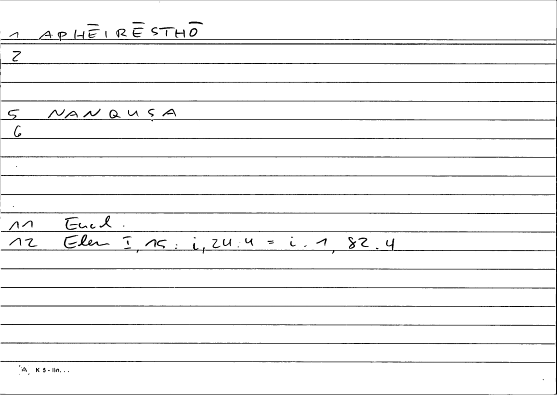 1 APHĒIRĒSTHŌ
2
5 NANQUṢA
6
11 Eucl.
12 Elem I, 15: i, 24.4 = i. 1, 82.4
K 5 - lin...